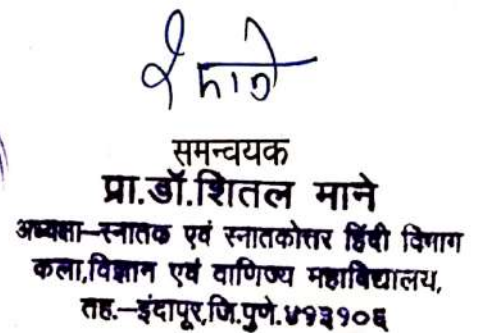 समन्वयक
प्रा.डॉ.शितल माने
अध्यक्षा-स्नातक एवं स्नातकोत्तर हिंदी विभाग
कला,विज्ञान एवं वाणिज्य महाविद्यालय,
तह.-इंदापूर,जि.पुणे.४१३१०६